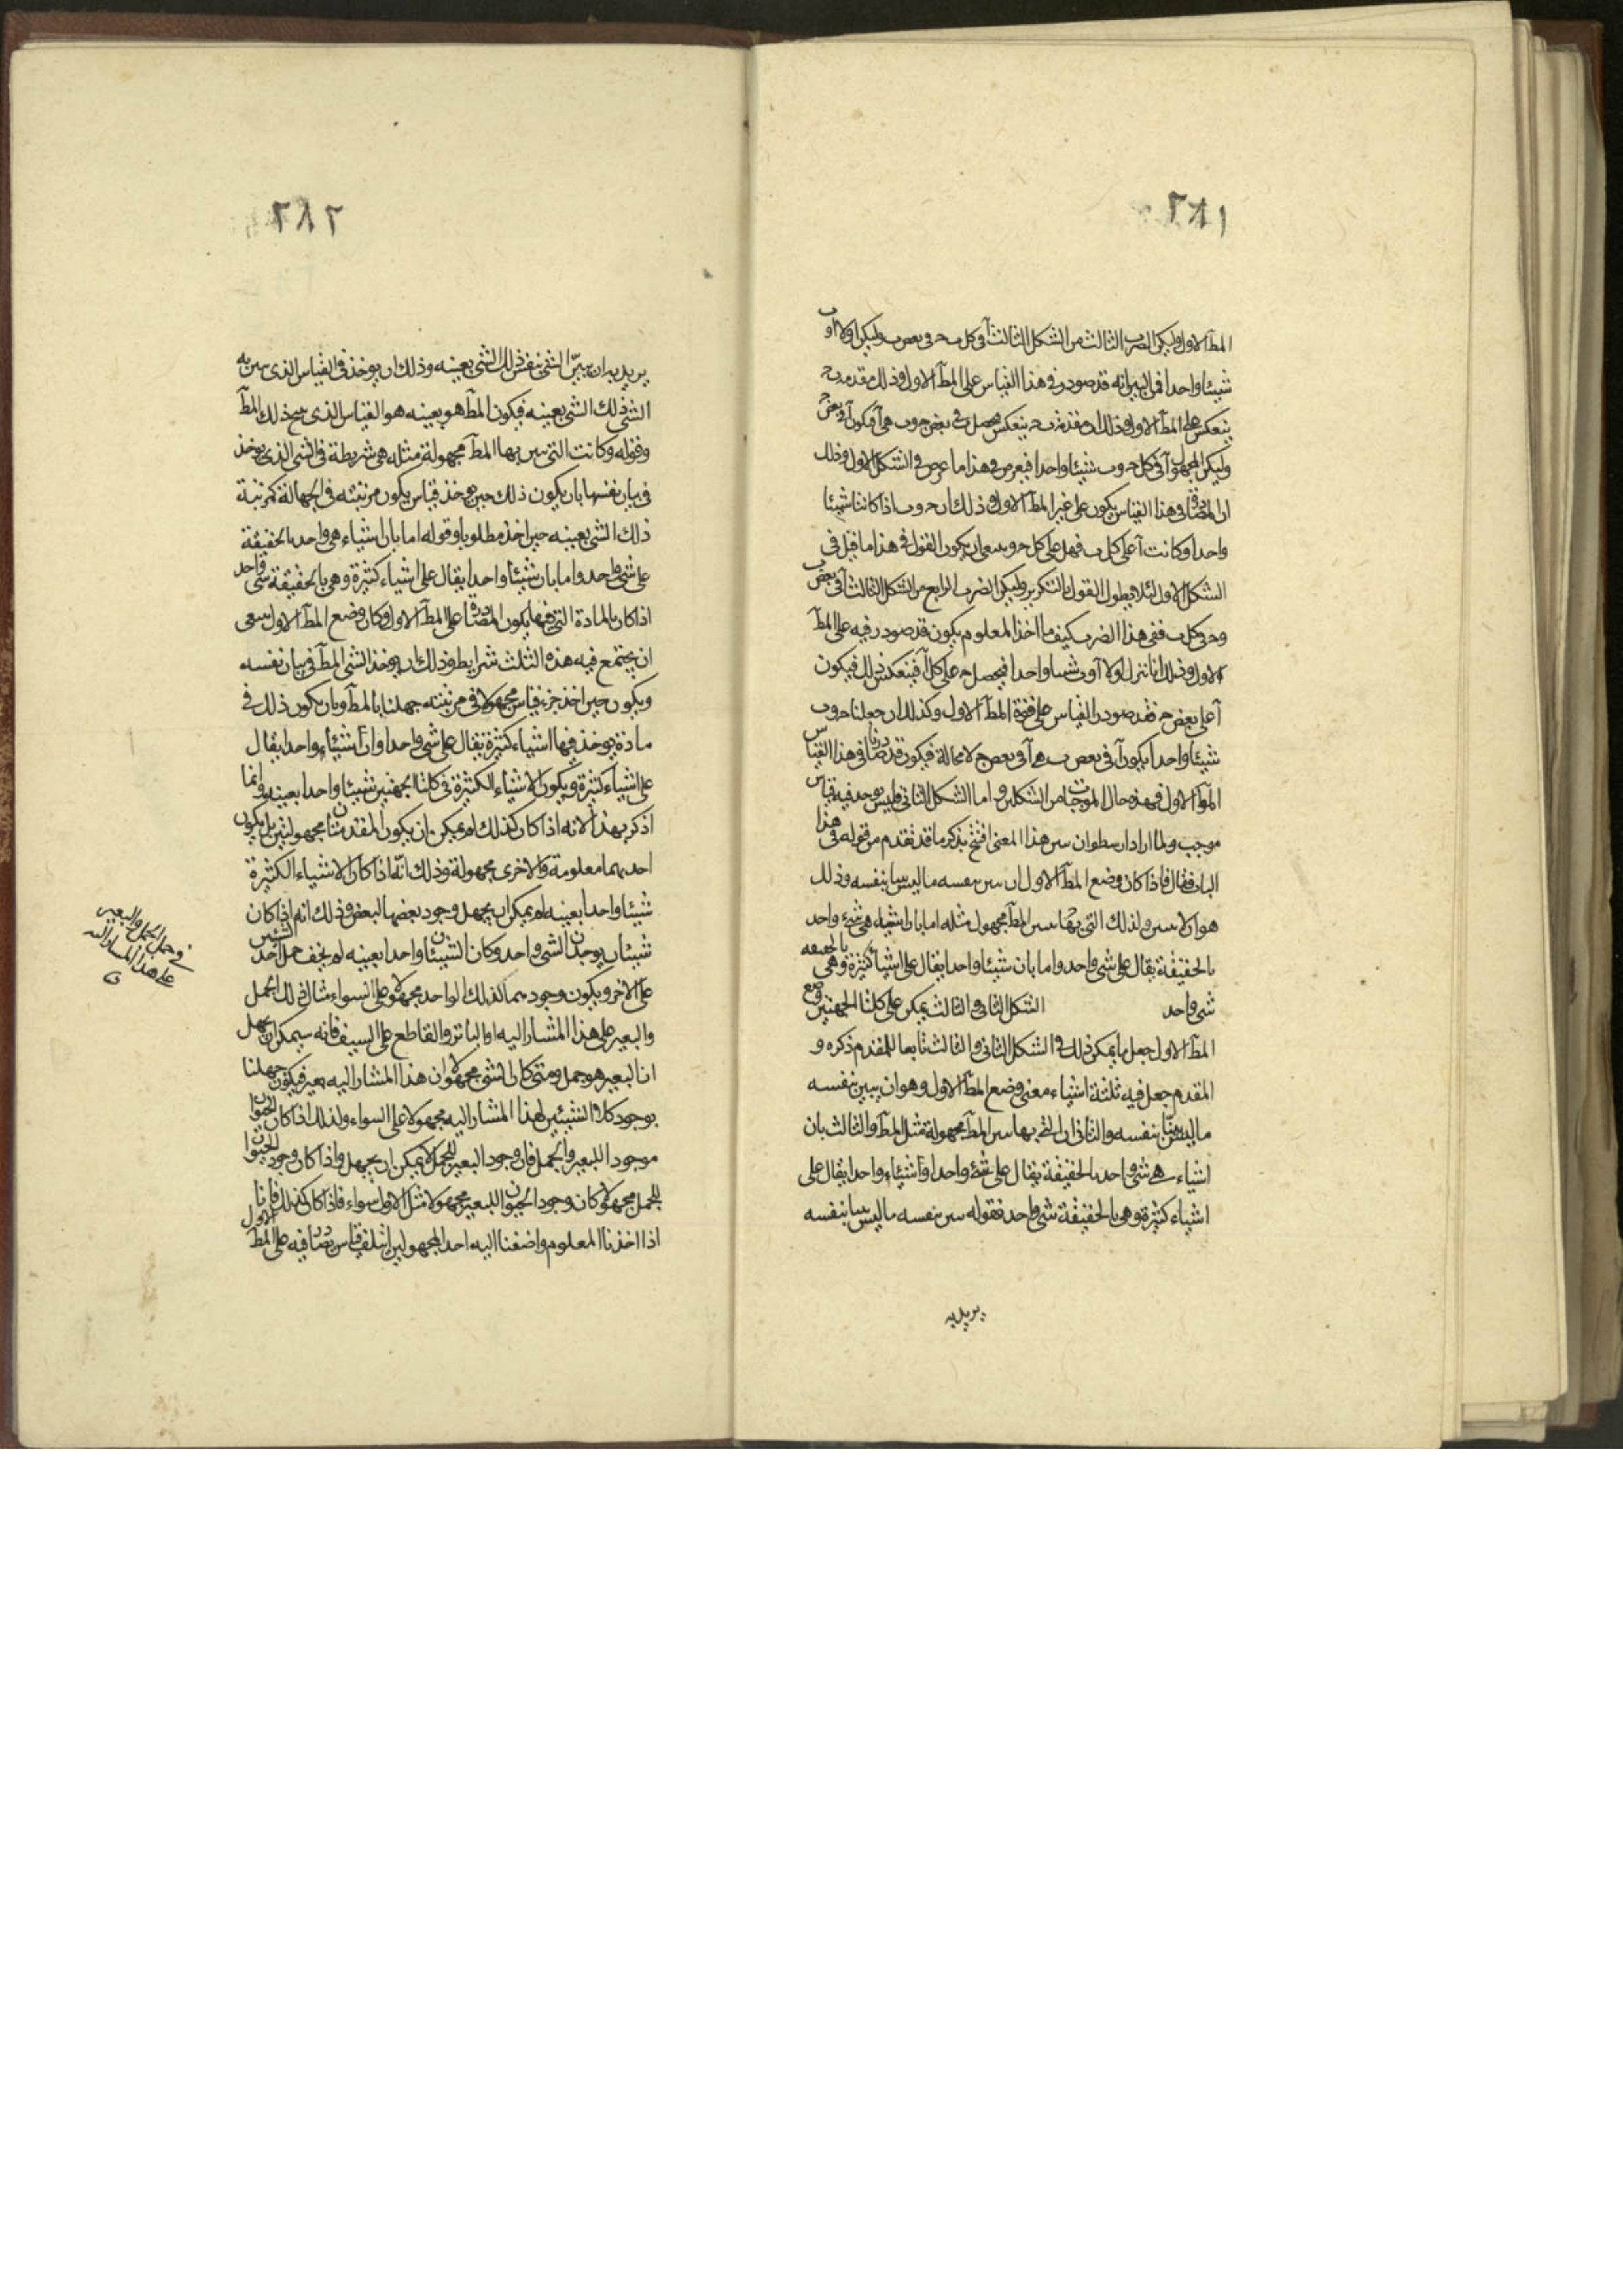 ٢٨١
المطَ الاول وليكن الضرب الثالث من الشكل الثالث آ في كل ب حـ في بعض ب وليكن اولا آ و ب
شيئا واحدا فمن البين انه قد صودر في هذا القياس على المطَ الاول وذلك مقدمة ب حـ
ينعكس على المطَ الاول وذلك مقدمة ب حـ ينعكس فيحصل ب في بعض حـ و ب هي آ فيكون آ في بعض حـ
وليكن المجهول آ في كل حـ و ب شيئا واحدا فيعرض في هذا ما عرض في الشكل الاول وذلك
ان المصادرة في هذا القياس يكون على غير المطَ الاول وذلك ان حـ و ب اذا كانتا شيئا
واحدا وكانت آ على كل ب فهل على كل حـ وينبغي ان يكون القول في هذا ما قيل في
الشكل الاول لئلا يطول القول بالتكرير وليكن الضرب الرابع من الشكل الثالث آ في بعض ب
وحـ في كل ب ففي هذا الضرب كيف ما اخذ المعلوم يكون قد صودر فيه على المطَ
الاول وذلك انا ننزل اولا آ و ب شيئا واحدا فيحصل حـ على كل آ فينعكس ذلك فيكون
آ على بعض حـ فقد صودر القياس على قوة المطَ الاول وكذلك ان جعلنا حـ و ب
شيئا واحدا يكون آ في بعض ب هي آ في بعض حـ لا محالة فيكون قد صادرنا في هذا القياس
المطَ الاول فهذه حال الموجبات من الشكلين واما الشكل الثاني فليس يوجد فيه قياس
موجب ولما اراد ارسطو ان يبين هذا المعنى افتتح بذكر ما قد تقدم من قوله في هذا
الباب فقال فاذا كان وضع المطَ الاول ان يبين بنفسه ما ليس بينا بنفسه وذلك
هو ان لا يبين ولذلك التي بها يبين المطَ مجهول مثله اما بان اشياء هي شيء واحد
بالحقيقة يقال على شي واحد واما بان شيئا واحدا يقال على اشيا كثيرة وهي بالحقيقه
شي واحد الشكل الثاني والثالث يمكن على كلتا الجهتين وضع
المطَ الاول جعل ما يمكن ذلك في الشكل الثاني والثالث تابعا للمقدم ذكره و
المقدم جعل فيه ثلثة اشياء معنى وضع المطَ الاول وهو ان يبين بنفسه
ما ليس بينا بنفسه والثاني ان التي بها يبين المطَ مجهولة مثل المطَ والثالث بان
اشياء هي شي واحد بالحقيقة يقال على شيء واحد او اشياء واحد يقال على
اشياء كثيرة وهي بالحقيقة شي واحد فقوله يبين بنفسه ما ليس بينا بنفسه
يريد به
٢٨٢
يريد به ان يبيّن الشي بنفس ذلك الشي بعينه وذلك ان يوخذ في القياس الذي يبين به
الشي ذلك الشي بعينه فيكون المطَ هو بعينه هو القياس الذي ينتج ذلك المطَ
وقوله وكانت التي يبين بها المطَ مجهولة مثله هي شريطة في الشي الذي يوخذ
في بيان نفسها بان يكون ذلك حين يوخذ قياس يكون مرتبته في الجهالة كمرتبة
ذلك الشي بعينه حين اخذ مطلوبا وقوله اما بان اشياء هي واحد بالحقيقة
على شي واحد واما بان شيئا واحدا يقال على اشياء كثيرة وهي بالحقيقة شي واحد
اذا كان بالمادة التي فيها يكون المصادرة على المطَ الاول وكان وضع المطَ الاول ينبغي
ان يجتمع فيه هذه الثلث شرايط وذلك ان يوخذ الشي المطَ في بيان نفسه
ويكون حين اخذ جزء قياس مجهولا في مرتبته جهلنا بالمطَ وبان يكون ذلك في
مادة يوخذ فيها اشياء كثيرة يقال على شي واحد او ان شيئا واحدا يقال
على اشياء كثيرة ويكون الاشياء الكثيرة في كلتا الجهتين شيئا واحدا بعينه وانما
اذكر بهذا لانه اذا كان كذلك لم يمكن ان يكون المقدمتان مجهولتين بل يكون
احديهما معلومة والاخرى مجهولة وذلك انّه اذا كان الاشياء الكثيرة
شيئا واحدا بعينه لم يمكن ان يجهل وجود بعضها لبعض وذلك انه اذا كان
شيئان يوجدان لشي واحد وكان الشيئان واحدا بعينه لم يخف حمل احد الشيئين
على الاخر ويكون وجودهما لذلك الواحد مجهولا على السواء مثال ذلك الجمل
والبعير على هذا المشار اليه او الباتر والقاطع على السيف فانه ليس يمكن ان يجهل
ان البعير هو جمل ومتى كان الشي مجهولا ان هذا المشار اليه بعير فيكون جهلنا
بوجود كلا الشيئين لهذا المشار اليه مجهولا على السواء ولذلك اذا كان الحيوان
موجود البعير والجمل فان وجود البعير للجمل لا يمكن ان يجهل واذا كان وجود الحيوان
للجمل مجهولا كان وجود الحيوان للبعير مجهولا مثل الاول سواء فاذا كان كذلك فانا
اذا اخذنا المعلوم واضفنا اليه احد المجهولين ائتلف قياس يصادر فيه على المطَ الاول
وحمل الجمل والبعير
على هذا المشار اليه